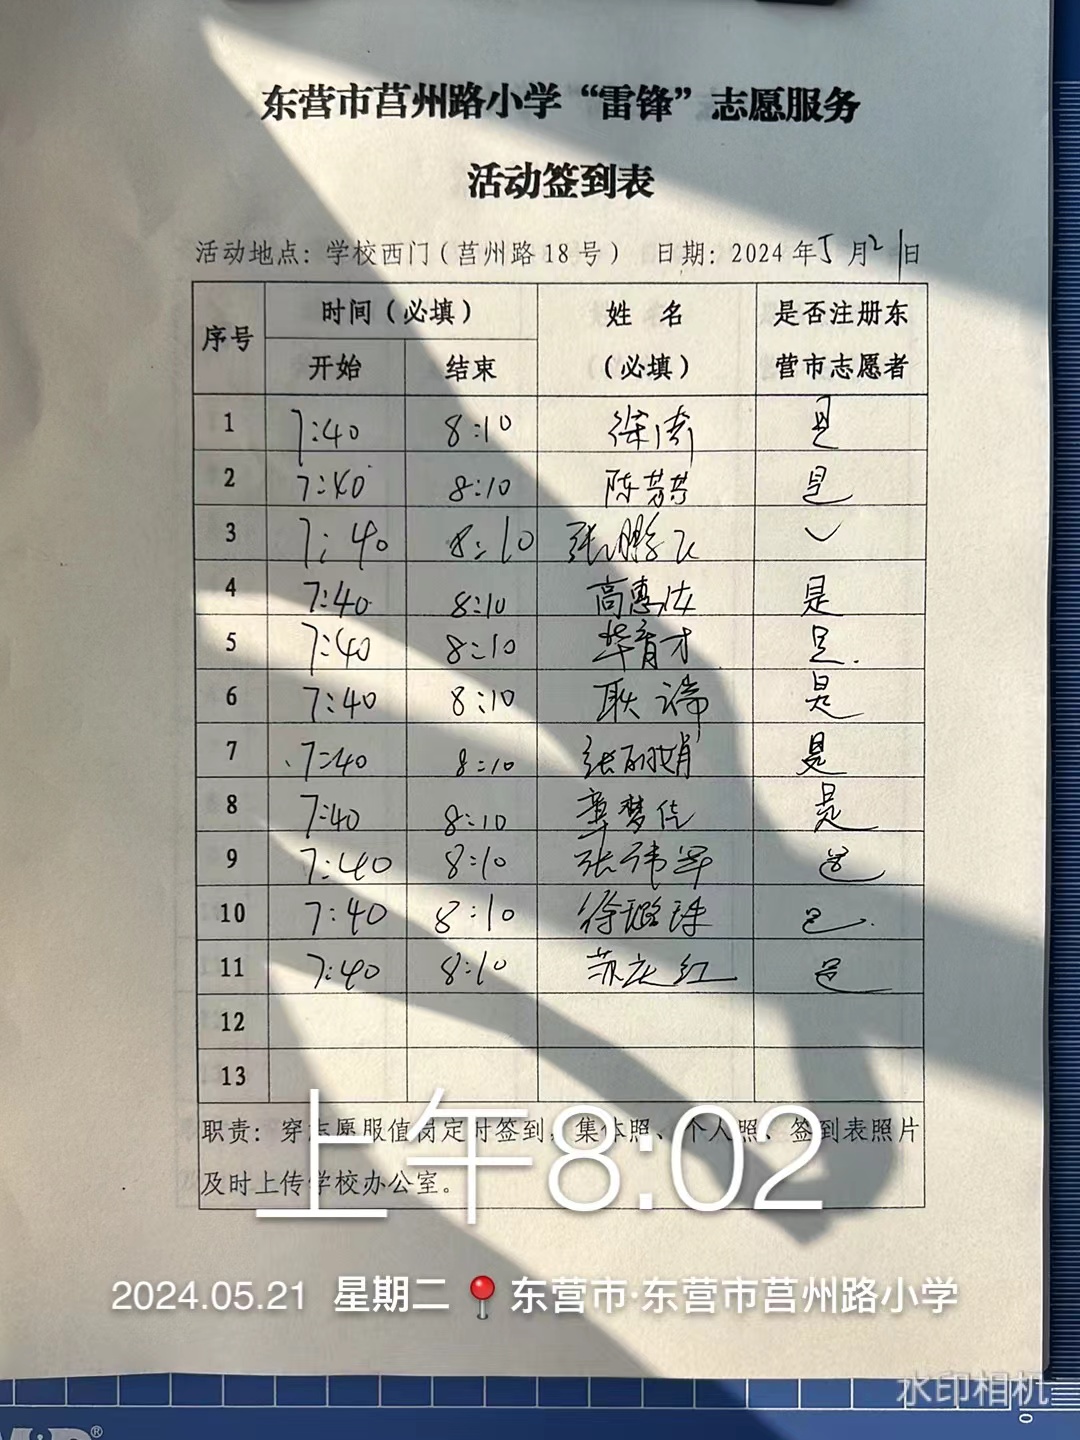 东营市莒州路小学“雷锋”志愿服务
活动签到表
活动地点：学校西门（莒州路18号） 日期：2024年5月21日
序号 时间（必填） 姓 名（必填） 是否注册东营市志愿者
开始 结束
1 7:40 8:10 徐倩 是
2 7:40 8:10 陈芳芳 是
3 7:40 8:10 张鹏飞 ✓
4 7:40 8:10 高惠 是
5 7:40 8:10 华育才 是.
6 7:40 8:10 耿 是
7 7:40 8:10 张丽娟 是
8 7:40 8:10 梦佳 是
9 7:40 8:10 张 是
10 7:40 8:10 徐璐珠 是.
11 7:40 8:10 苏庆红 是
12
13
职责：穿志愿服值岗定时签到，集体照、个人照、签到表照片
及时上传学校办公室。
上午8:02
2024.05.21 星期二 东营市·东营市莒州路小学
水印相机